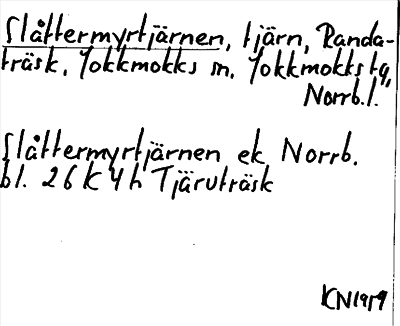 Slåttermyrtjärnen, tjärn, Randa-
träsk, Jokkmokks sn, Jokkmokks tg,
Norrb.l.
Slåttermyrtjärnen ek Norrb.
bl. 26 K 4 h Tjäruträsk
KN 1959